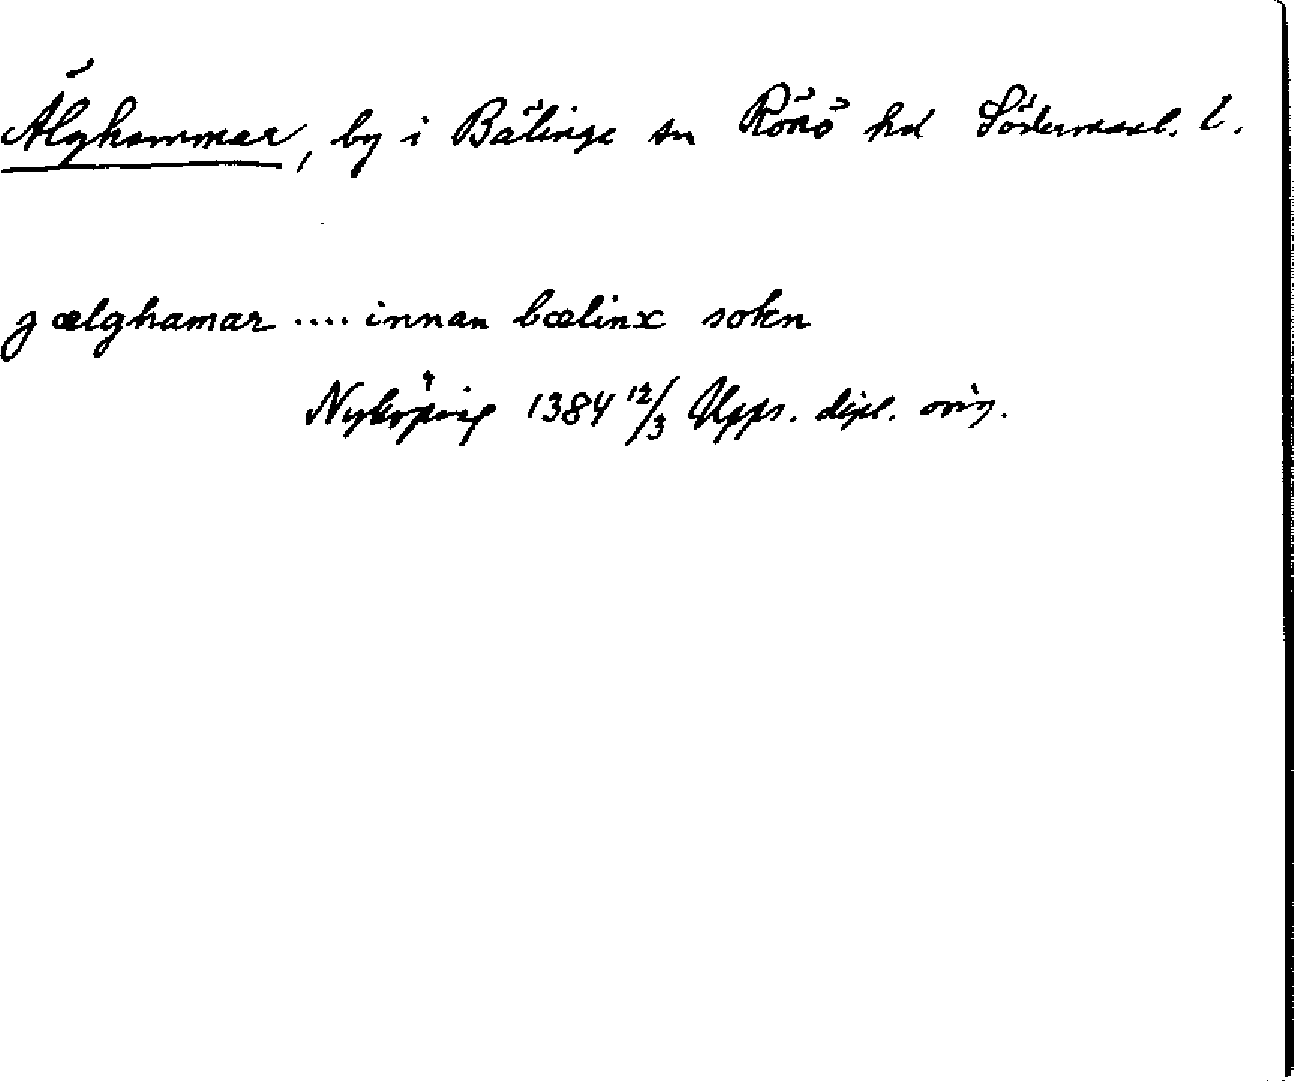 Älghammar, by i Bälinge sn Rönö hd Södermanl. l.
j ælghamar .... innan bælinx sokn
Nyköping 1384 12/3 Upps. dipl. orig.